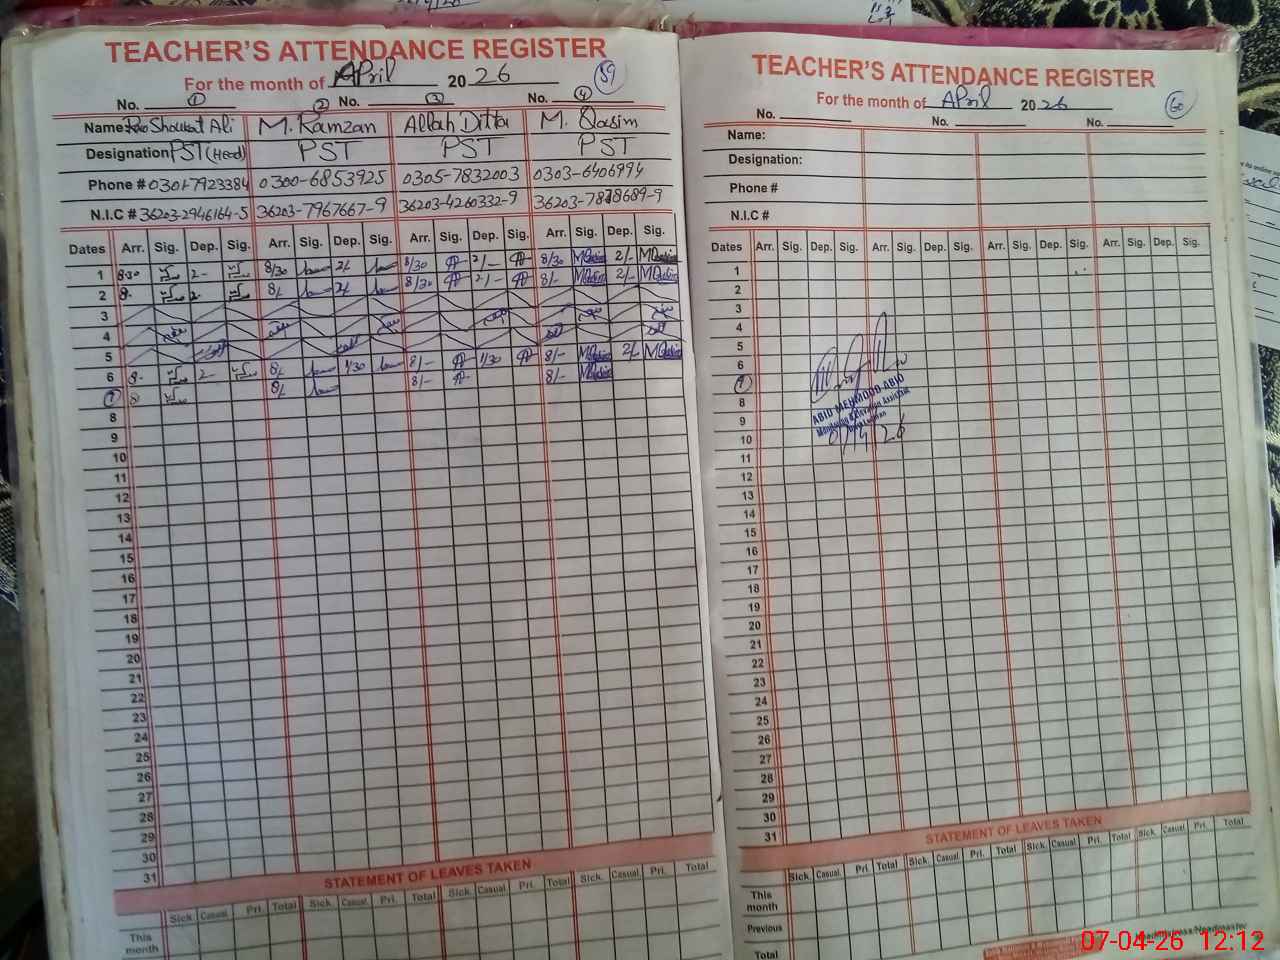 TEACHER'S ATTENDANCE REGISTER
For the month of April 20 26 59
No. 1 2 No. 3 No. 4
Name: Rao Shoukat Ali M. Ramzan Allah Ditta M. Qasim
Designation PST (Head) PST PST PST
Phone # 0301-7923384 0300-6853925 0305-7832003 0303-6406994
N.I.C # 36203-2946164-5 36203-7967667-9 36203-4260332-9 36203-7878689-9
Dates Arr. Sig. Dep. Sig. Arr. Sig. Dep. Sig. Arr. Sig. Dep. Sig. Arr. Sig. Dep. Sig.
1 8-30 2- 8/30 2/ 8/30 2/- 8/30 MQasim 2/- MQasim
2 8- 2- 8/ 2/ 8/30 2/- 8/- MQasim 2/- MQasim
3
4
5
6 8- 2- 8/ 1/30 8/- 1/30 8/- MQasim 2/- MQasim
7 8 8/ 8/- 8/- MQasim
8
9
10
11
12
13
14
15
16
17
18
19
20
21
22
23
24
25
26
27
28
29
30
31
STATEMENT OF LEAVES TAKEN
Sick. Casual Pri. Total Sick. Casual Pri. Total Sick. Casual Pri. Total Sick. Casual Pri. Total
This month
TEACHER'S ATTENDANCE REGISTER
For the month of April 20 26 60
No. No. No.
Name:
Designation:
Phone #
N.I.C #
Dates Arr. Sig. Dep. Sig. Arr. Sig. Dep. Sig. Arr. Sig. Dep. Sig. Arr. Sig. Dep. Sig.
1
2
3
4
5
6
7
8
9
10
11
12
13
14
15
16
17
18
19
20
21
22
23
24
25
26
27
28
29
30
31
ABID MEHMOOD ABID
Monitoring & Evaluation Assistant
STATEMENT OF LEAVES TAKEN
Sick. Casual Pri. Total Sick. Casual Pri. Total Sick. Casual Pri. Total Sick. Casual Pri. Total
This month
Previous
Total
Headmistress/Headmaster
07-04-26 12:12